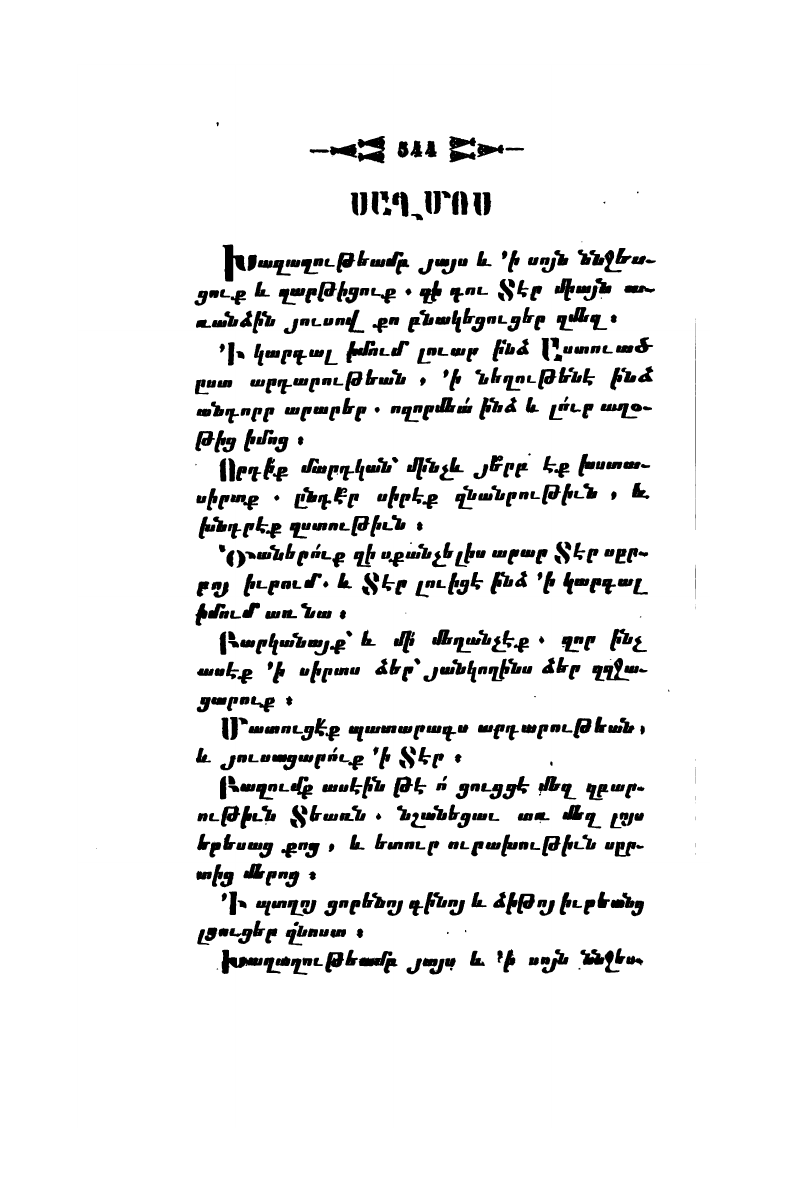 544
ՍԱՂՄՈՍ
Խաղաղութեամբ յայս և ՚ի սոյն ննջես-
ցուք և զարթիցուք . զի դու Տէր միայն ա-
ռանձին յուսով քո բնակեցուցեր զմեզ ։
՚Ի կարդալ իմում լուար ինձ Աստուած
ըստ արդարութեան , ՚ի նեղութենէ ինձ
անդորր արարեր . ողորմեա՛ ինձ և լո՛ւր աղօ-
թից իմոց ։
Որդի՛ք մարդկան՝ մինչև յե՞րբ էք խստա-
սիրտք . ընդէ՞ր սիրէք զնանրութիւն , և
խնդրէք զստութիւն ։
Ծաներո՛ւք զի սքանչելիս արար Տէր սըր-
բոյ իւրում . և Տէր լուիցէ ինձ ՚ի կարդալ
իմում առ նա ։
Բարկանայք՝ և մի մեղանչէք . զոր ինչ
ասէք ՚ի սիրտս ձեր՝ յանկողինս ձեր զղջա-
ցարուք ։
Մատուցէ՛ք պատարագս արդարութեան ,
և յուսացարո՛ւք ՚ի Տէր ։
Բազումք ասէին թէ ո՛ ցուցցէ մեզ զբար-
ութիւն Տեառն . նշանեցաւ առ մեզ լոյս
երեսաց քոց , և ետուր ուրախութիւն սըր-
տից մերոց ։
՚Ի պտղոյ ցորենոյ գինոյ և ձիթոյ իւրեանց
լցուցեր զնոսա ։
Խաղաղութեամբ յայս և ՚ի սոյն ննջես-